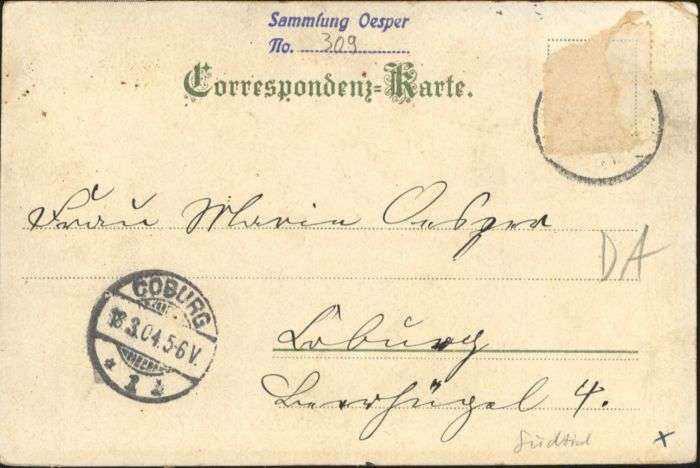 Sammlung Oesper
No. 309
Correspondenz-Karte.
Frau Maria Oesper
DA
COBURG
13.3.04.5-6V.
* 1 1
Coburg
Leerhügel 4.
Südtirol
x